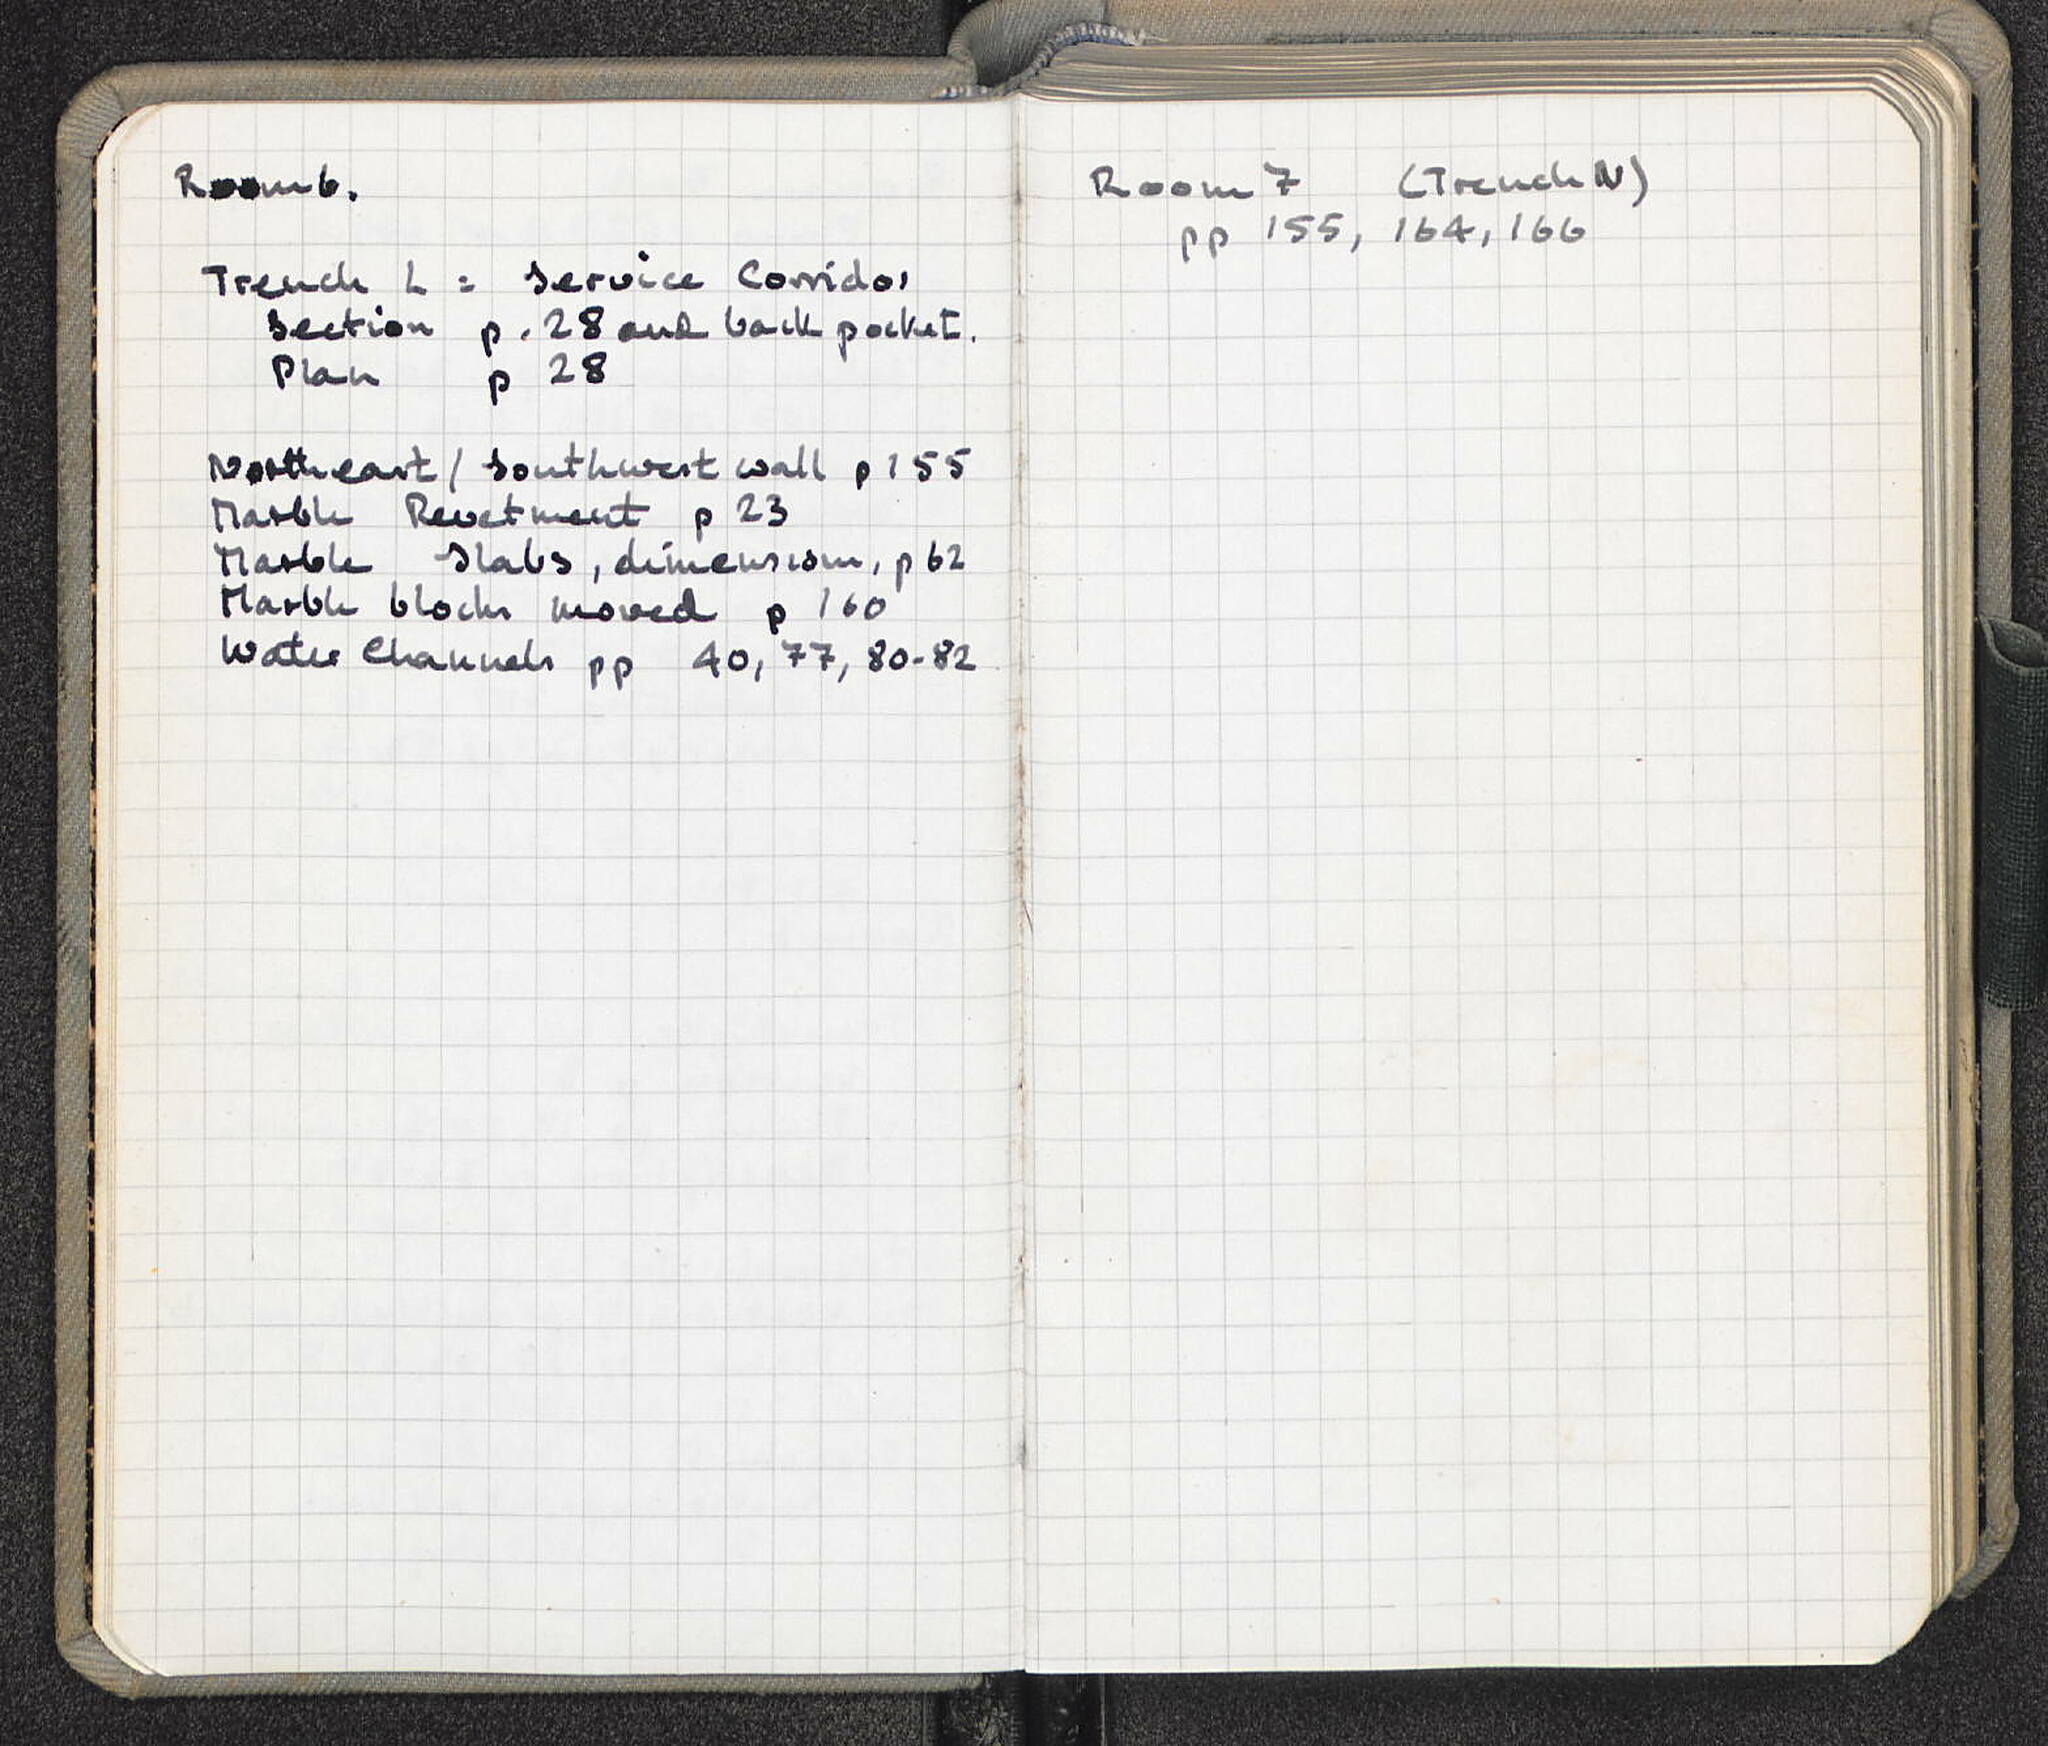 Room 6.
Trench L = Service Corridor
Section p. 28 and back pocket.
Plan p 28
Northeast/Southwest wall p 155
Marble Revetment p 23
Marble Slabs, dimensions, p 62
Marble blocks moved p 160
Water Channels pp 40, 77, 80-82
Room 7 (Trench N)
pp 155, 164, 166